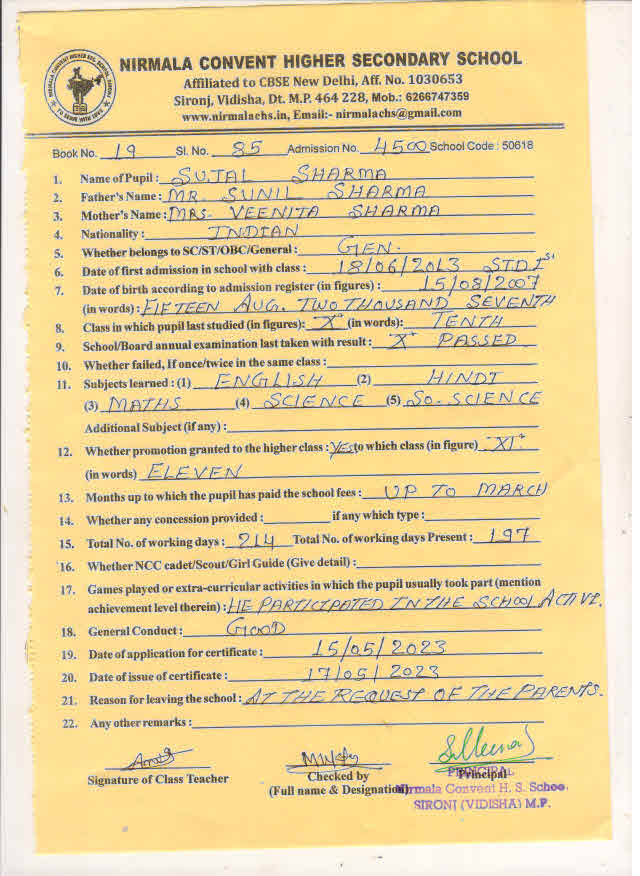 NIRMALA CONVENT HIGHER SECONDARY SCHOOL
Affiliated to CBSE New Delhi, Aff. No. 1030653
Sironj, Vidisha, Dt. M.P. 464 228, Mob.: 6266747359
www.nirmalaehs.in, Email:- nirmalachs@gmail.com
Book No. 19 Sl. No. 85 Admission No. 4500 School Code : 50618
1. Name of Pupil : SUJAL SHARMA
2. Father's Name : MR. SUNIL SHARMA
3. Mother's Name : MRS. VEENITA SHARMA
4. Nationality : INDIAN
5. Whether belongs to SC/ST/OBC/General : GEN.
6. Date of first admission in school with class : 18/06/2013 STD. I st
7. Date of birth according to admission register (in figures) : 15/08/2007
(in words) : FIFTEEN AUG. TWO THOUSAND SEVENTH
8. Class in which pupil last studied (in figures): "X" (in words): TENTH
9. School/Board annual examination last taken with result : "X" PASSED
10. Whether failed, If once/twice in the same class :
11. Subjects learned : (1) ENGLISH (2) HINDI
(3) MATHS (4) SCIENCE (5) So. SCIENCE
Additional Subject (if any) :
12. Whether promotion granted to the higher class : Yes to which class (in figure) "XI"
(in words) ELEVEN
13. Months up to which the pupil has paid the school fees : UP TO MARCH
14. Whether any concession provided : if any which type :
15. Total No. of working days : 214 Total No. of working days Present : 197
16. Whether NCC cadet/Scout/Girl Guide (Give detail) :
17. Games played or extra-curricular activities in which the pupil usually took part (mention
achievement level therein) : HE PARTICIPATED IN THE SCHOOL ACTIVE.
18. General Conduct : GOOD
19. Date of application for certificate : 15/05/2023
20. Date of issue of certificate : 17/05/2023
21. Reason for leaving the school : AT THE REQUEST OF THE PARENTS.
22. Any other remarks :
Signature of Class Teacher
Checked by
(Full name & Designation)
Principal
PRINCIPAL
Nirmala Convent H. S. Schoo.
SIRONJ (VIDISHA) M.P.